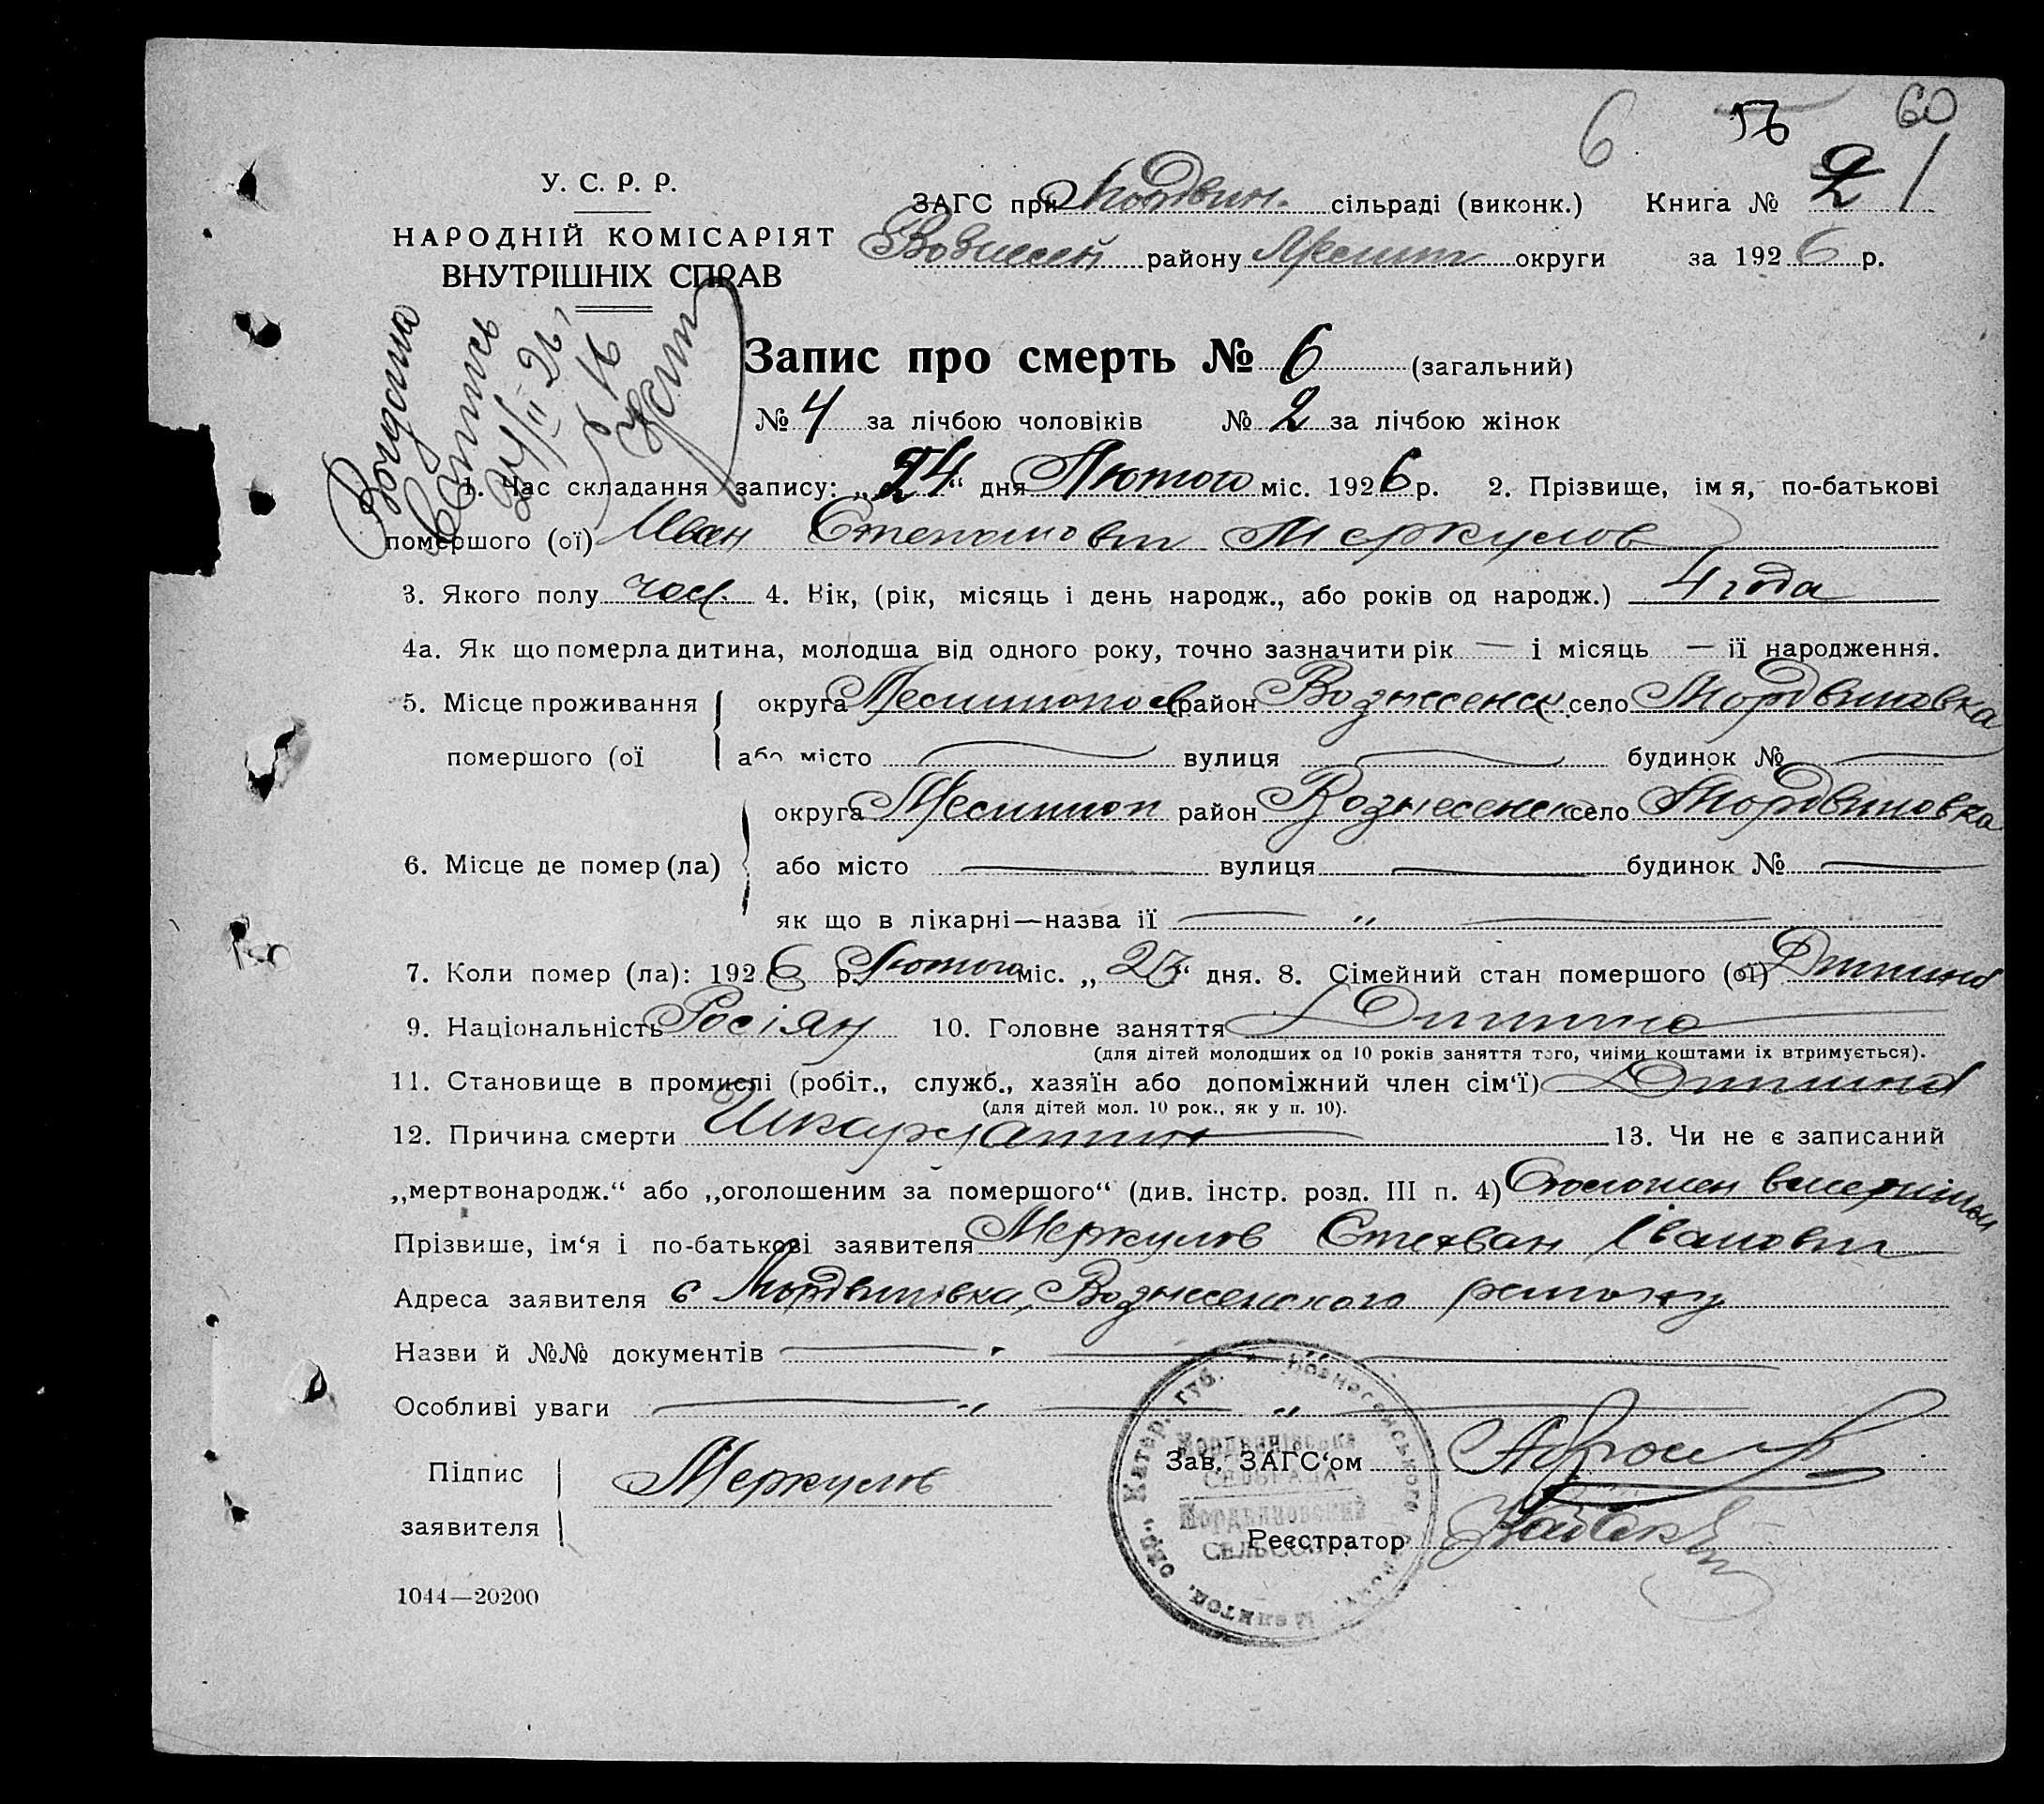 6 56 60
У. С. Р. Р.
НАРОДНІЙ КОМІСАРІЯТ
ВНУТРІШНІХ СПРАВ
ЗАГС при Мордвин. сільраді (виконк.) Книга № 2 1
району округи за 1926 р.
24/II 26
Запис про смерть № 6 (загальний)
№ 4 за лічбою чоловіків № 2 за лічбою жінок
1. Час складання запису: „24“ дня Лютого міс. 1926 р. 2. Прізвище, імя, по-батькові
помершого (ої) Иван Степанович Меркулов
3. Якого полу чол. 4. Вік, (рік, місяць і день народж., або років од народж.) 4 года
4а. Як що померла дитина, молодша від одного року, точно зазначити рік — і місяць — її народження.
5. Місце проживання округа район Вознесенск. село Мордвиновка
помершого (ої або місто вулиця будинок №
округа Мелитоп район Вознесенск село Мордвиновка
6. Місце де помер (ла)
або місто вулиця будинок №
як що в лікарні—назва ії „
7. Коли помер (ла): 1926 р. Лютого міс. „23“ дня. 8. Сімейний стан помершого (ої) Дитина
9. Національність Росіян 10. Головне заняття Дитина
(для дітей молодших од 10 років заняття того, чиїми коштами їх втримується).
11. Становище в промислі (робіт., служб., хазяїн або допоміжний член сім‘ї) Дитина
(для дітей мол. 10 рок., як у п. 10).
12. Причина смерти Шкарлатин 13. Чи не є записаний
„мертвонародж.“ або „оголошеним за помершого“ (див. інстр. розд. III п. 4)
Прізвише, ім‘я і по-батькові заявителя Меркулов Степан Іванович
Адреса заявителя с Мордвинівка, Вознесенского
Назви й №№ документів
Особливі уваги
Підпис
заявителя
Меркулов
Зав. ЗАГС‘ом
Реєстратор
Мелитоп. окр. Катер. губ.
Мордвинівська
СЕЛЬРАДА
Мордвиновский
СЕЛЬСОВ
1044—20200